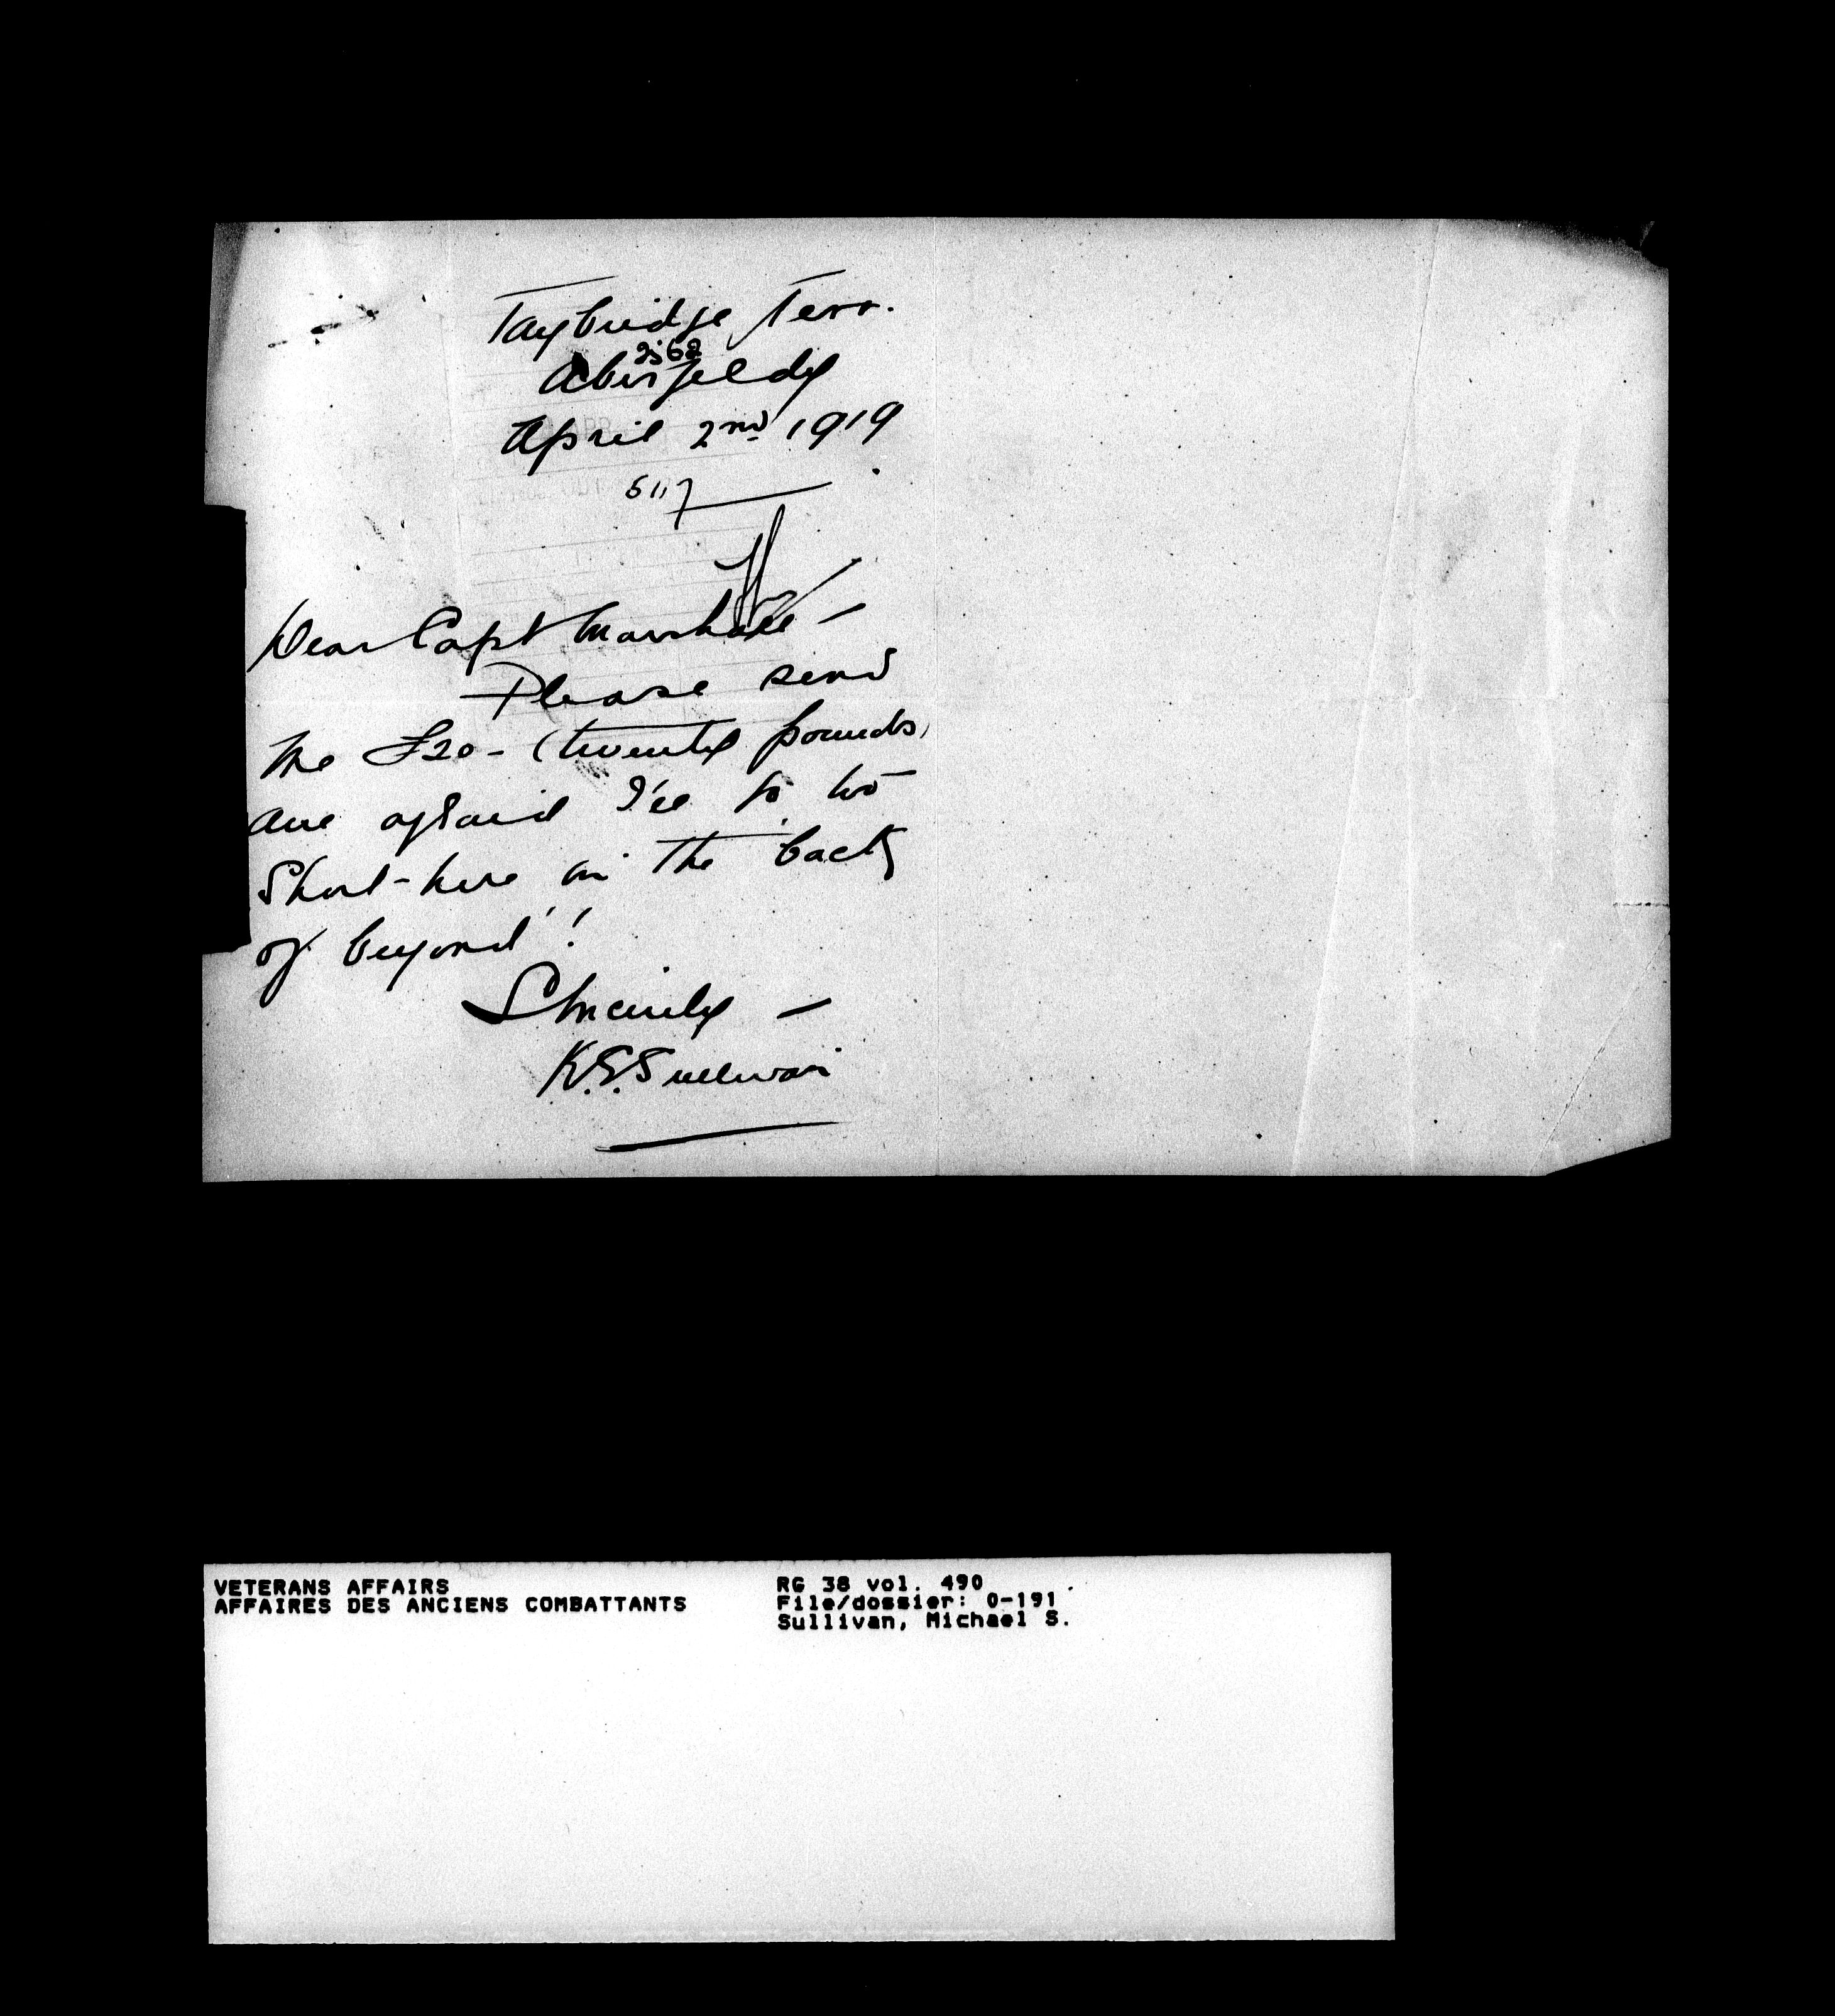 Taybridge Terr.
2562
Aberfeldy
April 2nd 1919
6117
Dear Capt Marshall -
Please send
me £20 - (twenty pounds)
am afraid I'll go too
short - here in the 'back
of beyond'!
Sincerely -
K.E. Sullivan
VETERANS AFFAIRS
AFFAIRES DES ANCIENS COMBATTANTS
RG 38 vol. 490
File/dossier: 0-191
Sullivan, Michael S.